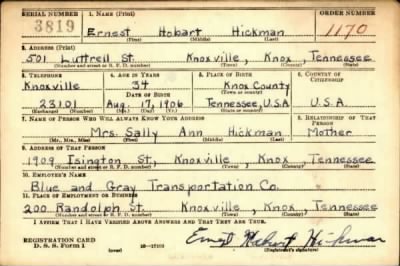 SERIAL NUMBER 1. NAME (Print) ORDER NUMBER
3819 Ernest Hobart Hickman 1170
(First) (Middle) (Last)
2. ADDRESS (Print)
501 Luttrell St. Knoxville, Knox, Tennessee
(Number and street or R. F. D. number) (Town) (County) (State)
3. TELEPHONE 4. AGE IN YEARS 5. PLACE OF BIRTH 6. COUNTRY OF CITIZENSHIP
Knoxville 34 Knox County
DATE OF BIRTH (Town or county)
23101 Aug. 17, 1906 Tennessee, U.S.A U.S.A.
(Exchange) (Number) (Mo.) (Day) (Yr.) (State or country)
7. NAME OF PERSON WHO WILL ALWAYS KNOW YOUR ADDRESS 8. RELATIONSHIP OF THAT PERSON
Mrs. Sally Ann Hickman Mother
(Mr., Mrs., Miss) (First) (Middle) (Last)
9. ADDRESS OF THAT PERSON
1909 Isington St, Knoxville, Knox, Tennessee
(Number and street or R. F. D. number) (Town) (County) (State)
10. EMPLOYER'S NAME
Blue and Gray Transportation Co.
11. PLACE OF EMPLOYMENT OR BUSINESS
200 Randolph St. Knoxville, Knox, Tennessee
(Number and street or R. F. D. number) (Town) (County) (State)
I AFFIRM THAT I HAVE VERIFIED ABOVE ANSWERS AND THAT THEY ARE TRUE.
REGISTRATION CARD Ernest Hobart Hickman
D. S. S. Form 1 (over) (Registrant's signature)